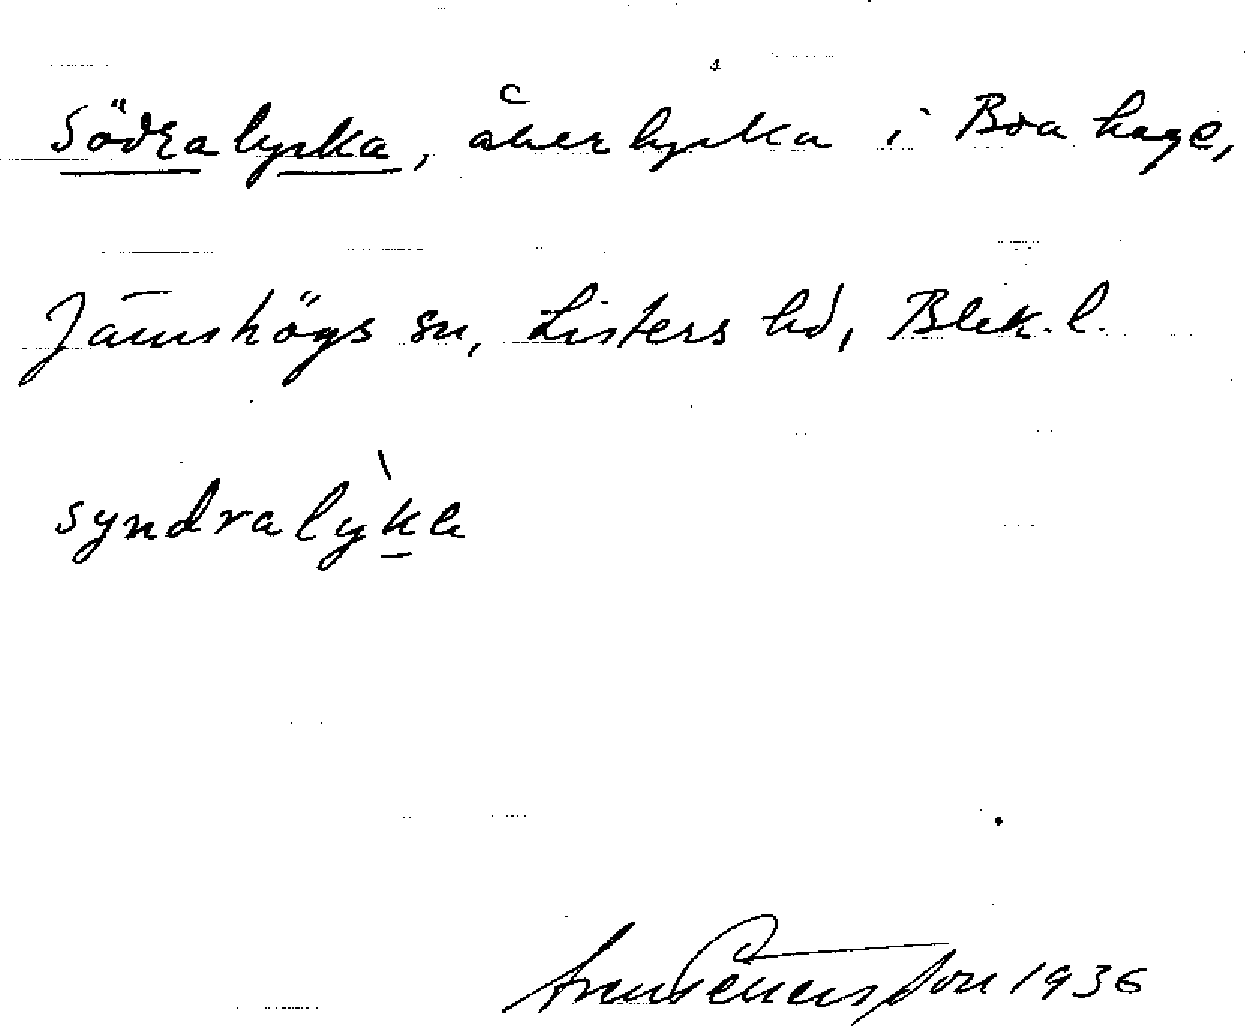 Södralycka, åkerlycka i Boa hage,
Jämshögs sn, Listers hd, Blek. l.
syndralỳka
1936